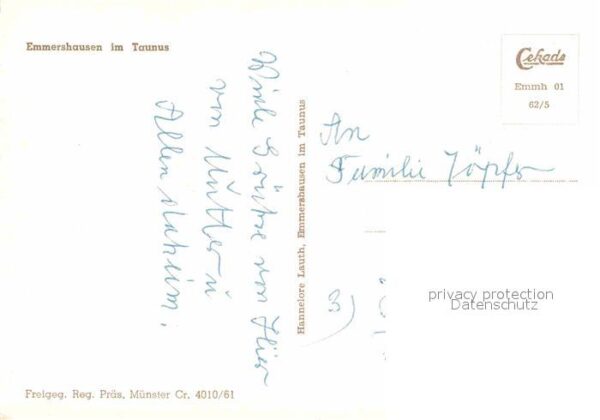 Emmershausen im Taunus
Cekade
Emmh 01
62/5
Viele Grüße von Hier
von Mutter u
Allen daheim.
Hannelore Lauth, Emmershausen im Taunus
An
Familie Töpfer
3)
privacy protection
Datenschutz
Freigeg. Reg. Präs. Münster Cr. 4010/61